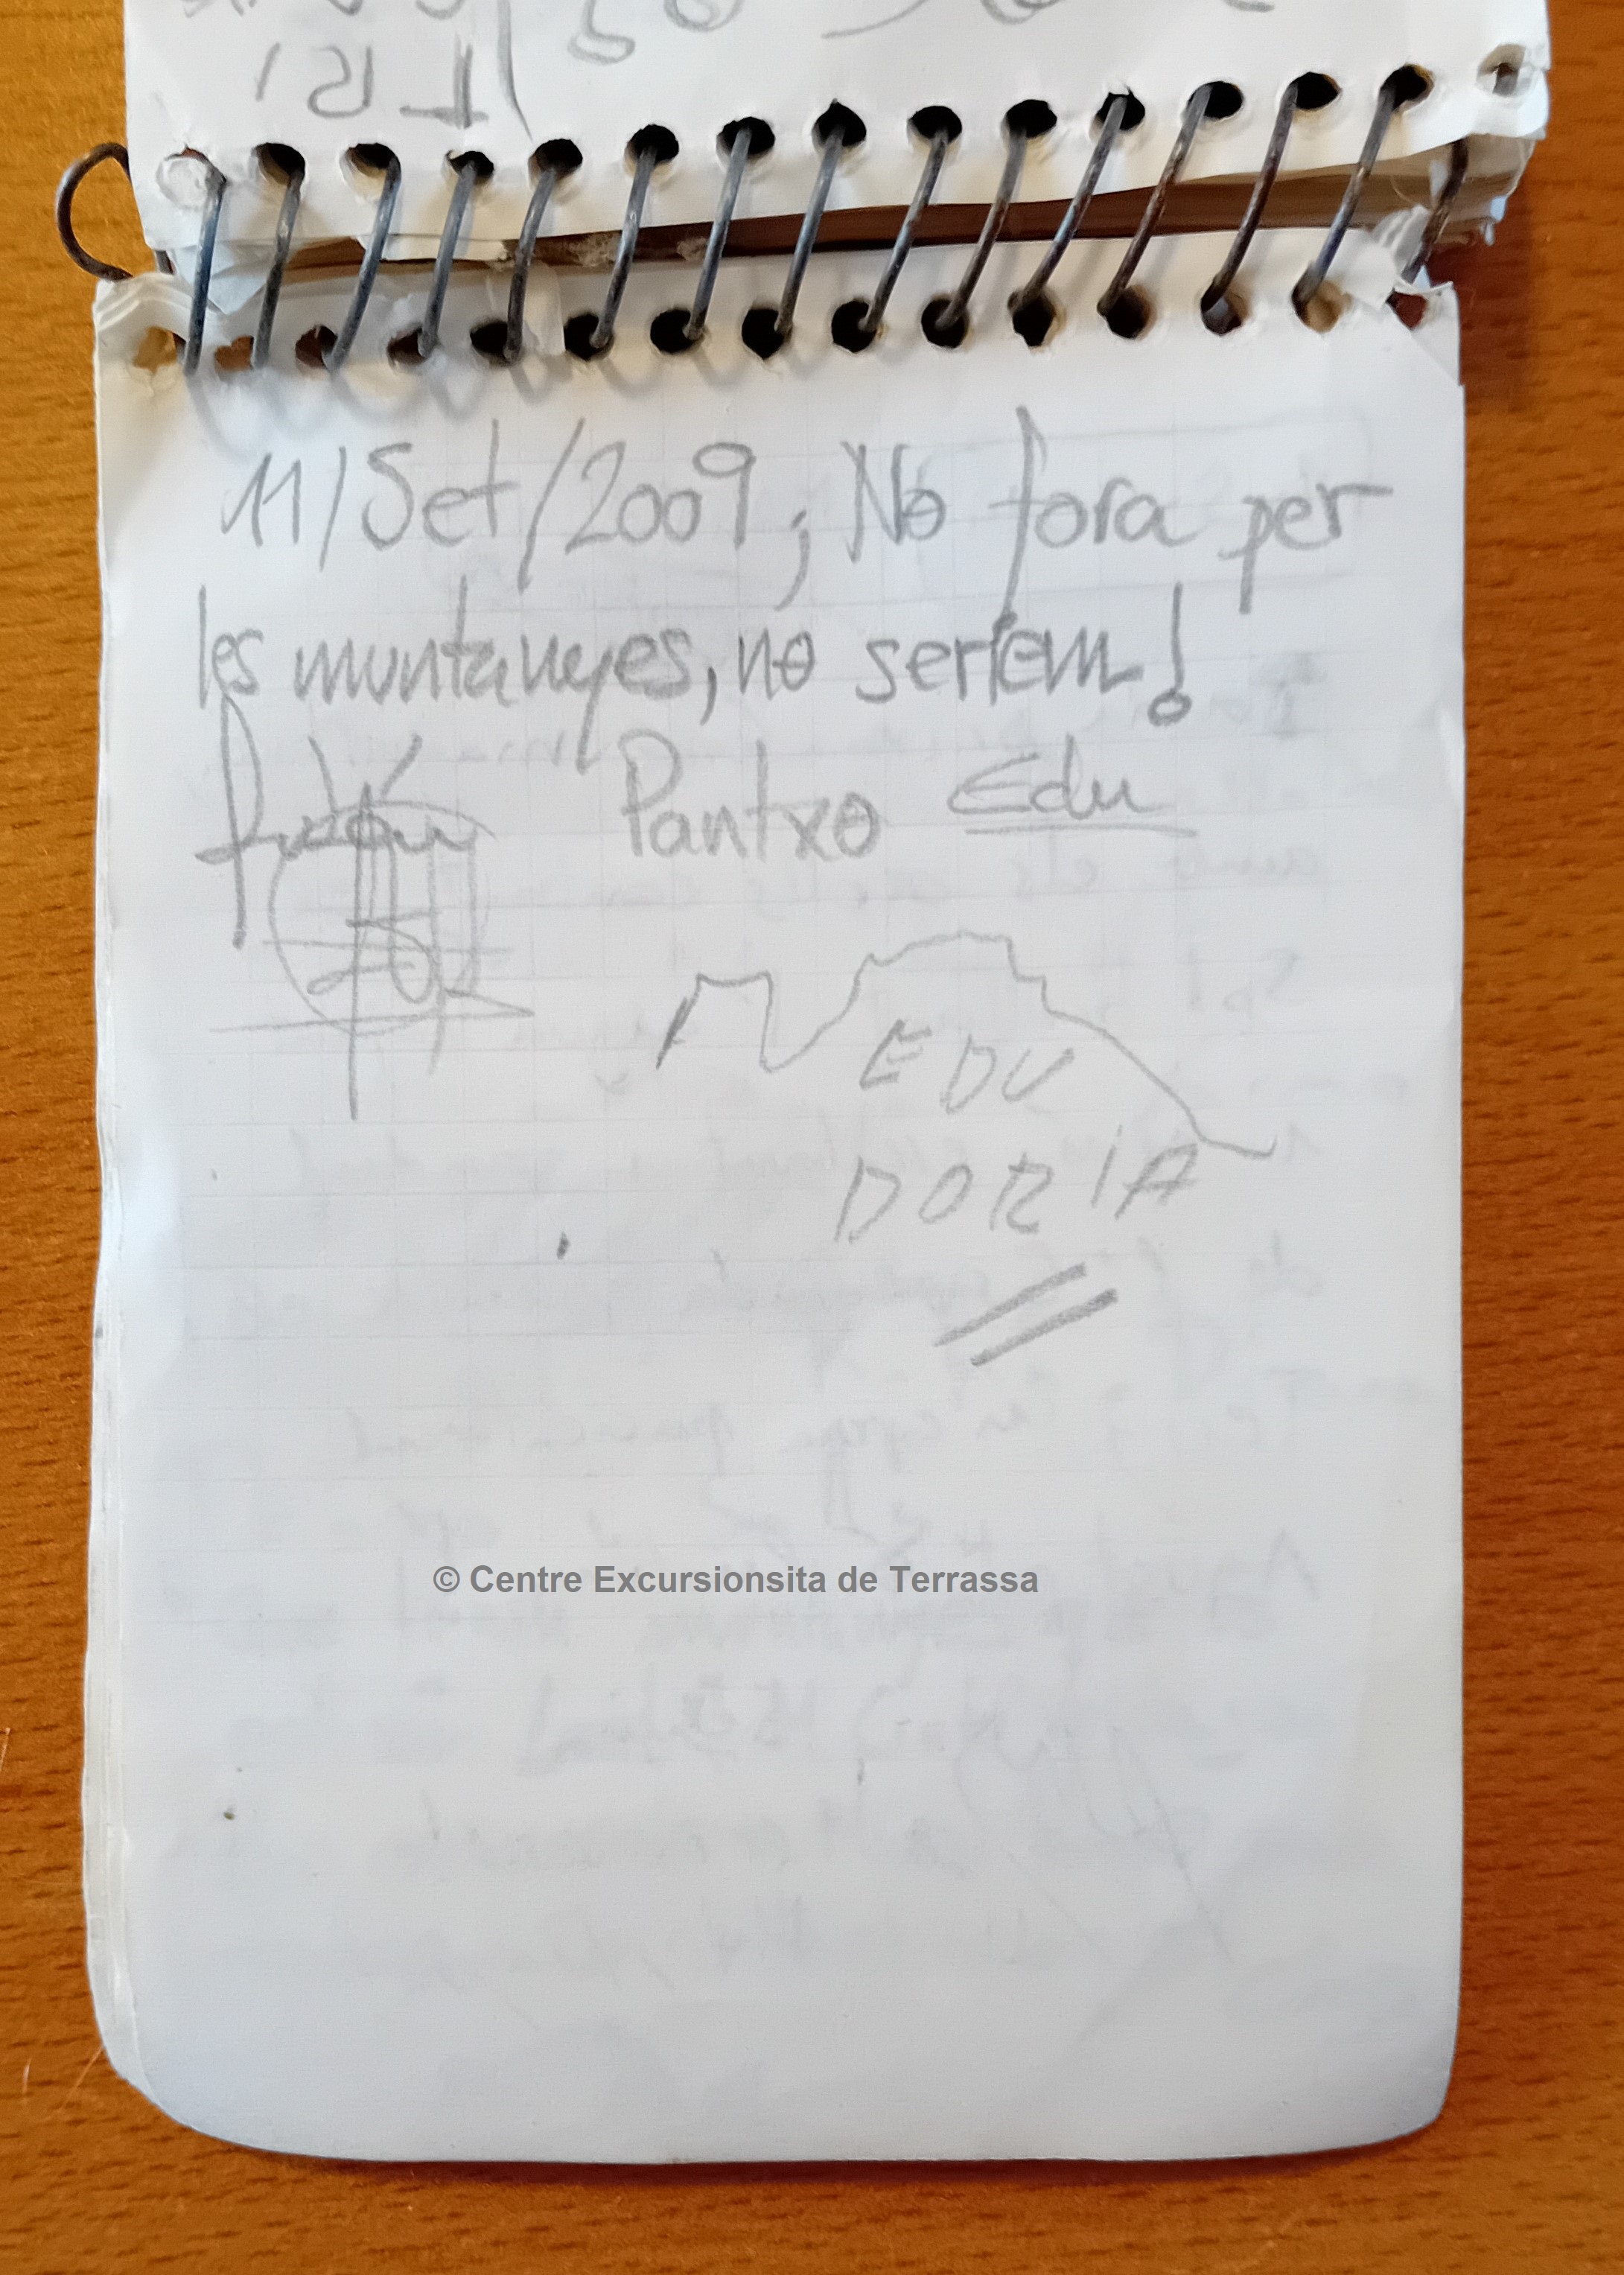 11/Set/2009; No fora per
les muntanyes, no seríem!
Pantxo Edu
EDU
DORIA
© Centre Excursionsita de Terrassa